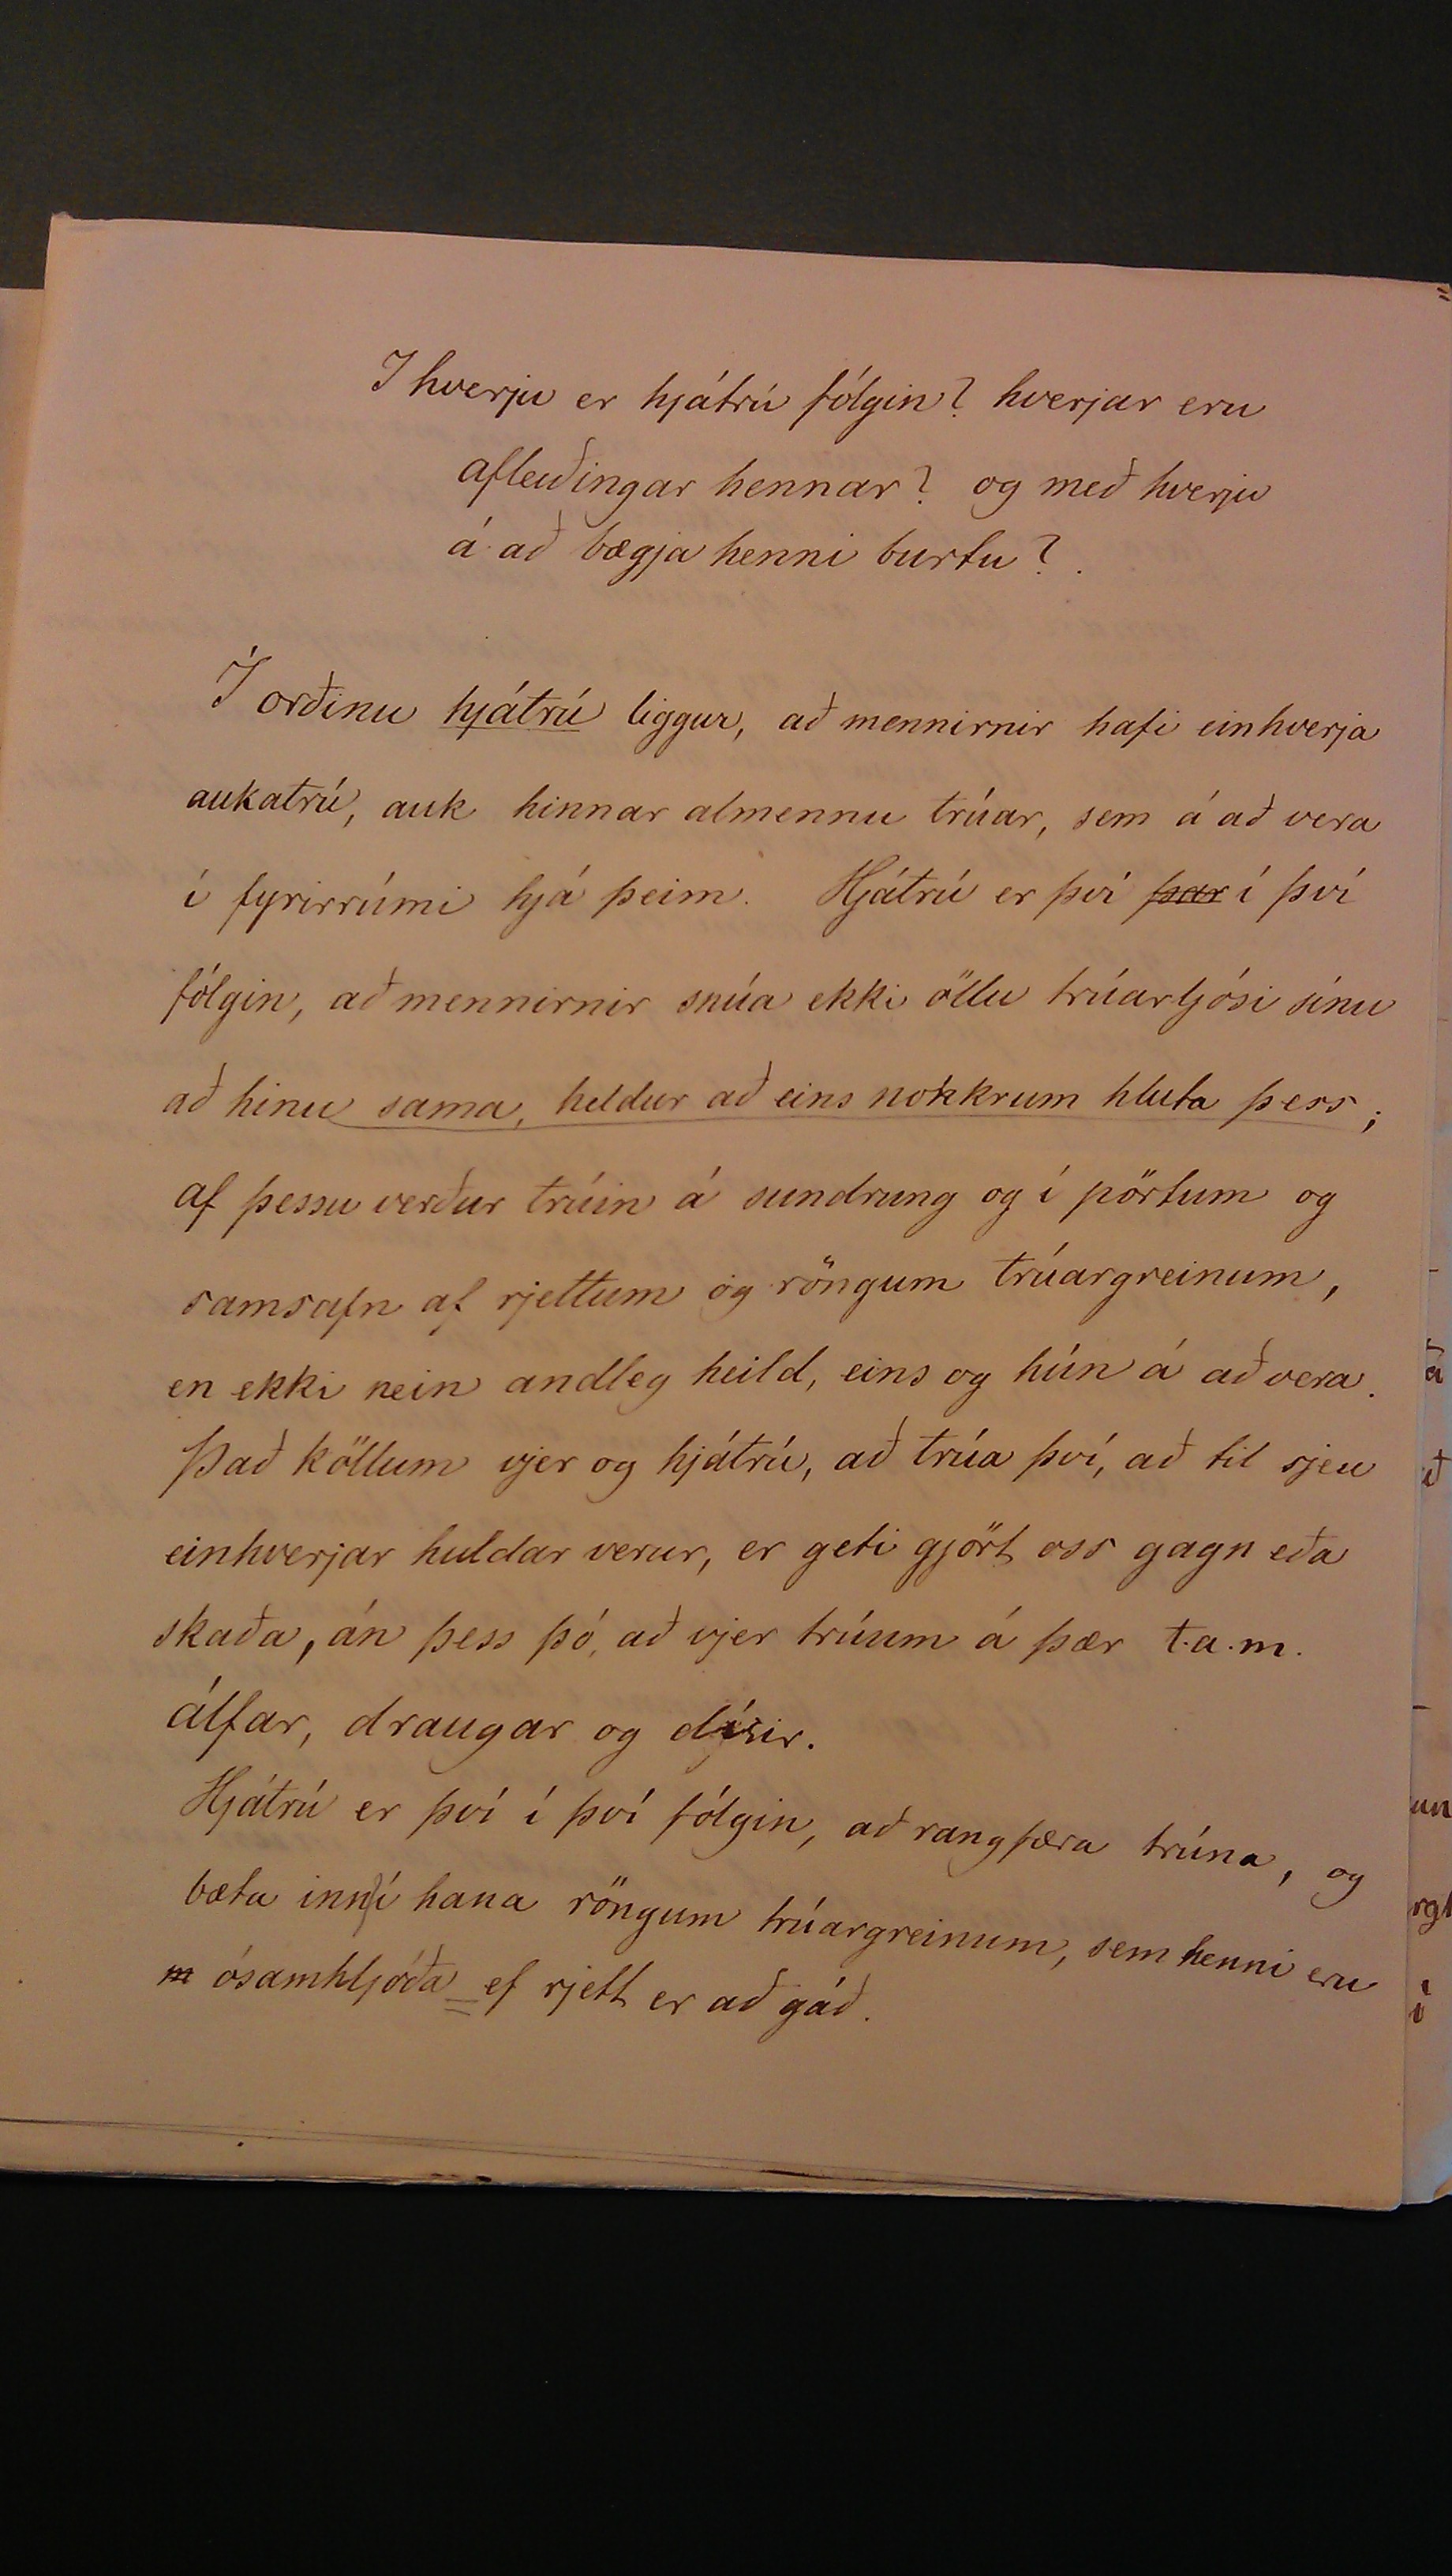 I hverju er hjátrú fólgin? hverjar eru
afleiðingar hennar? og með hverju
á að bægja henni burtu?
Í orðinu hjátrú liggur, að mennirnir hafi einhverja
aukatrú, auk hinnar almennu trúar, sem á að vera
í fyrirrúmi hjá þeim. Hjátrú er því þar í því
fólgin, að mennirnir snúa ekki öllu trúarljósi sínu
að hinu sama, heldur að eins nokkrum hluta þess;
af þessu verður trúin á sundrung og í pörtum og
samsafn af rjettum og röngum trúargreinum,
en ekki nein andleg heild, eins og hún á að vera.
Það köllum vjer og hjátrú, að trúa því, að til sjeu
einhverjar huldar verur, er geti gjört oss gagn eða
skaða, án þess þó, að vjer trúum á þær t.a.m.
álfar, draugar og dísir.
Hjátrú er því í því fólgin, að rangfæra trúna, og
bæta inní hana röngum trúargreinum, sem henni eru
m ósamhljóða ef rjett er að gáð.